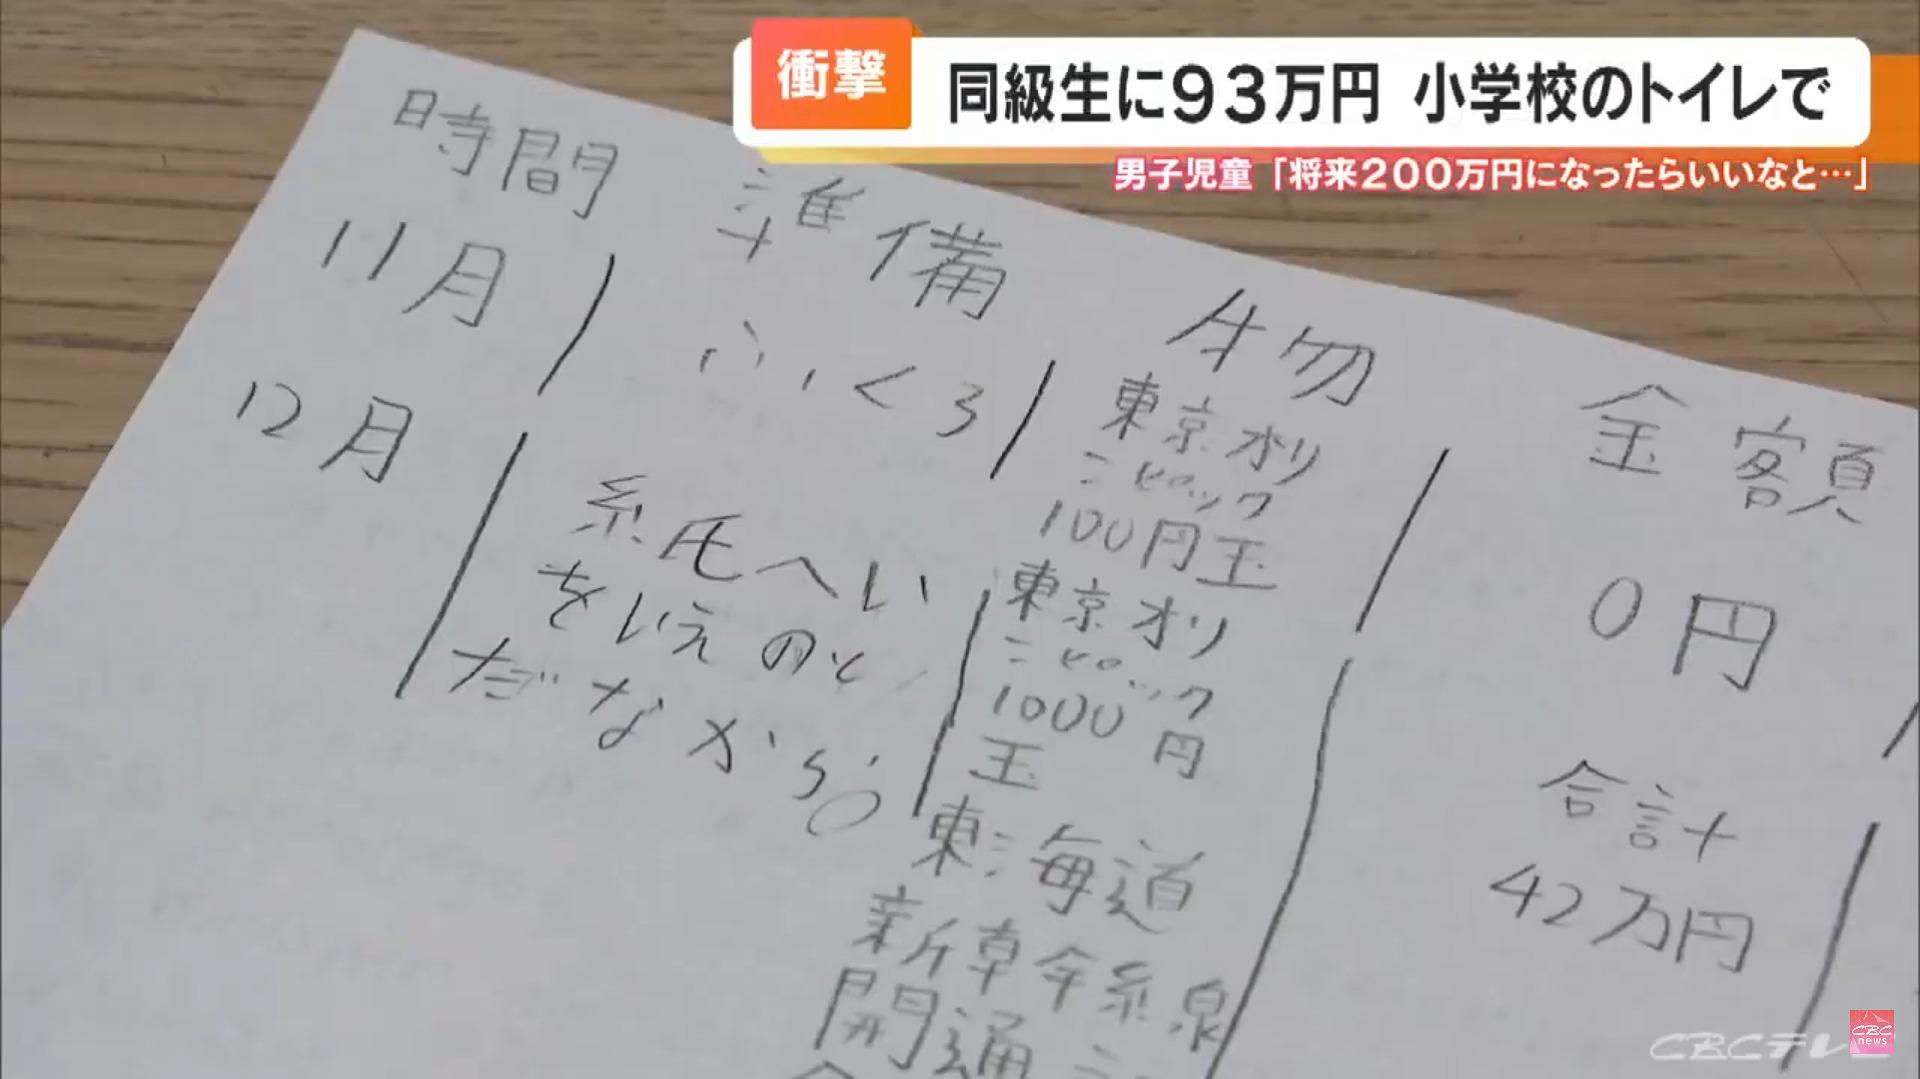 衝撃
同級生に93万円 小学校のトイレで
男子児童「将来200万円になったらいいなと…」
時間 準備 物 金額
11月 ふくろ 東京オリ
ンピック
100円玉
0円
12月 紙へい
をいえのと
だなから。
東京オリ
ンピック
1000円
玉
東海道
新幹線
開通
合計
42万円
CBCテレビ
CBC
news